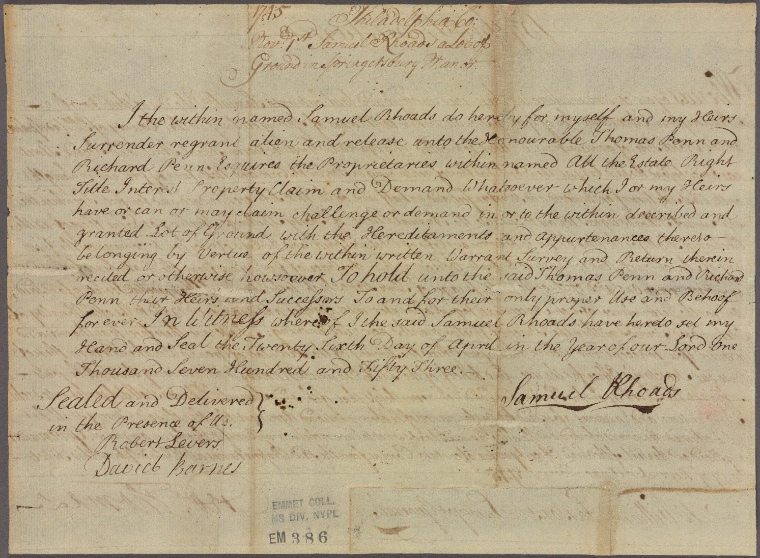 1745 Philadelphia Co:
Nov.r 1st Samuel Rhoads a Lot of
Ground in Springetsbury Manor
I the within named Samuel Rhoads do hereby for myself and my Heirs
Surrender regrant alien and release unto the Honourable Thomas Penn and
Richard Penn Esquires the Proprietaries within named All the Estate Right
Title Interest Property Claim and Demand Whatsoever which I or my Heirs
have or can or may claim challenge or demand in or to the within described and
granted Lot of Ground with the Hereditaments and Appurtenances thereto
belonging by Vertue of the within written Warrant Survey and Return therein
recited or otherwise howsoever To hold unto the said Thomas Penn and Richard
Penn their Heirs and Successors To and for their only proper Use and Behoof
for ever In Witness whereof I the said Samuel Rhoads have hereto set my
Hand and Seal the Twenty Sixth Day of April in the Year of our Lord One
Thousand Seven Hundred and Fifty Three.
Samuel Rhoads
Sealed and Delivered
in the Presence of Us.
Robert Levers
David Barnes
EMMET COLL.
MS DIV. NYPL
EM 386